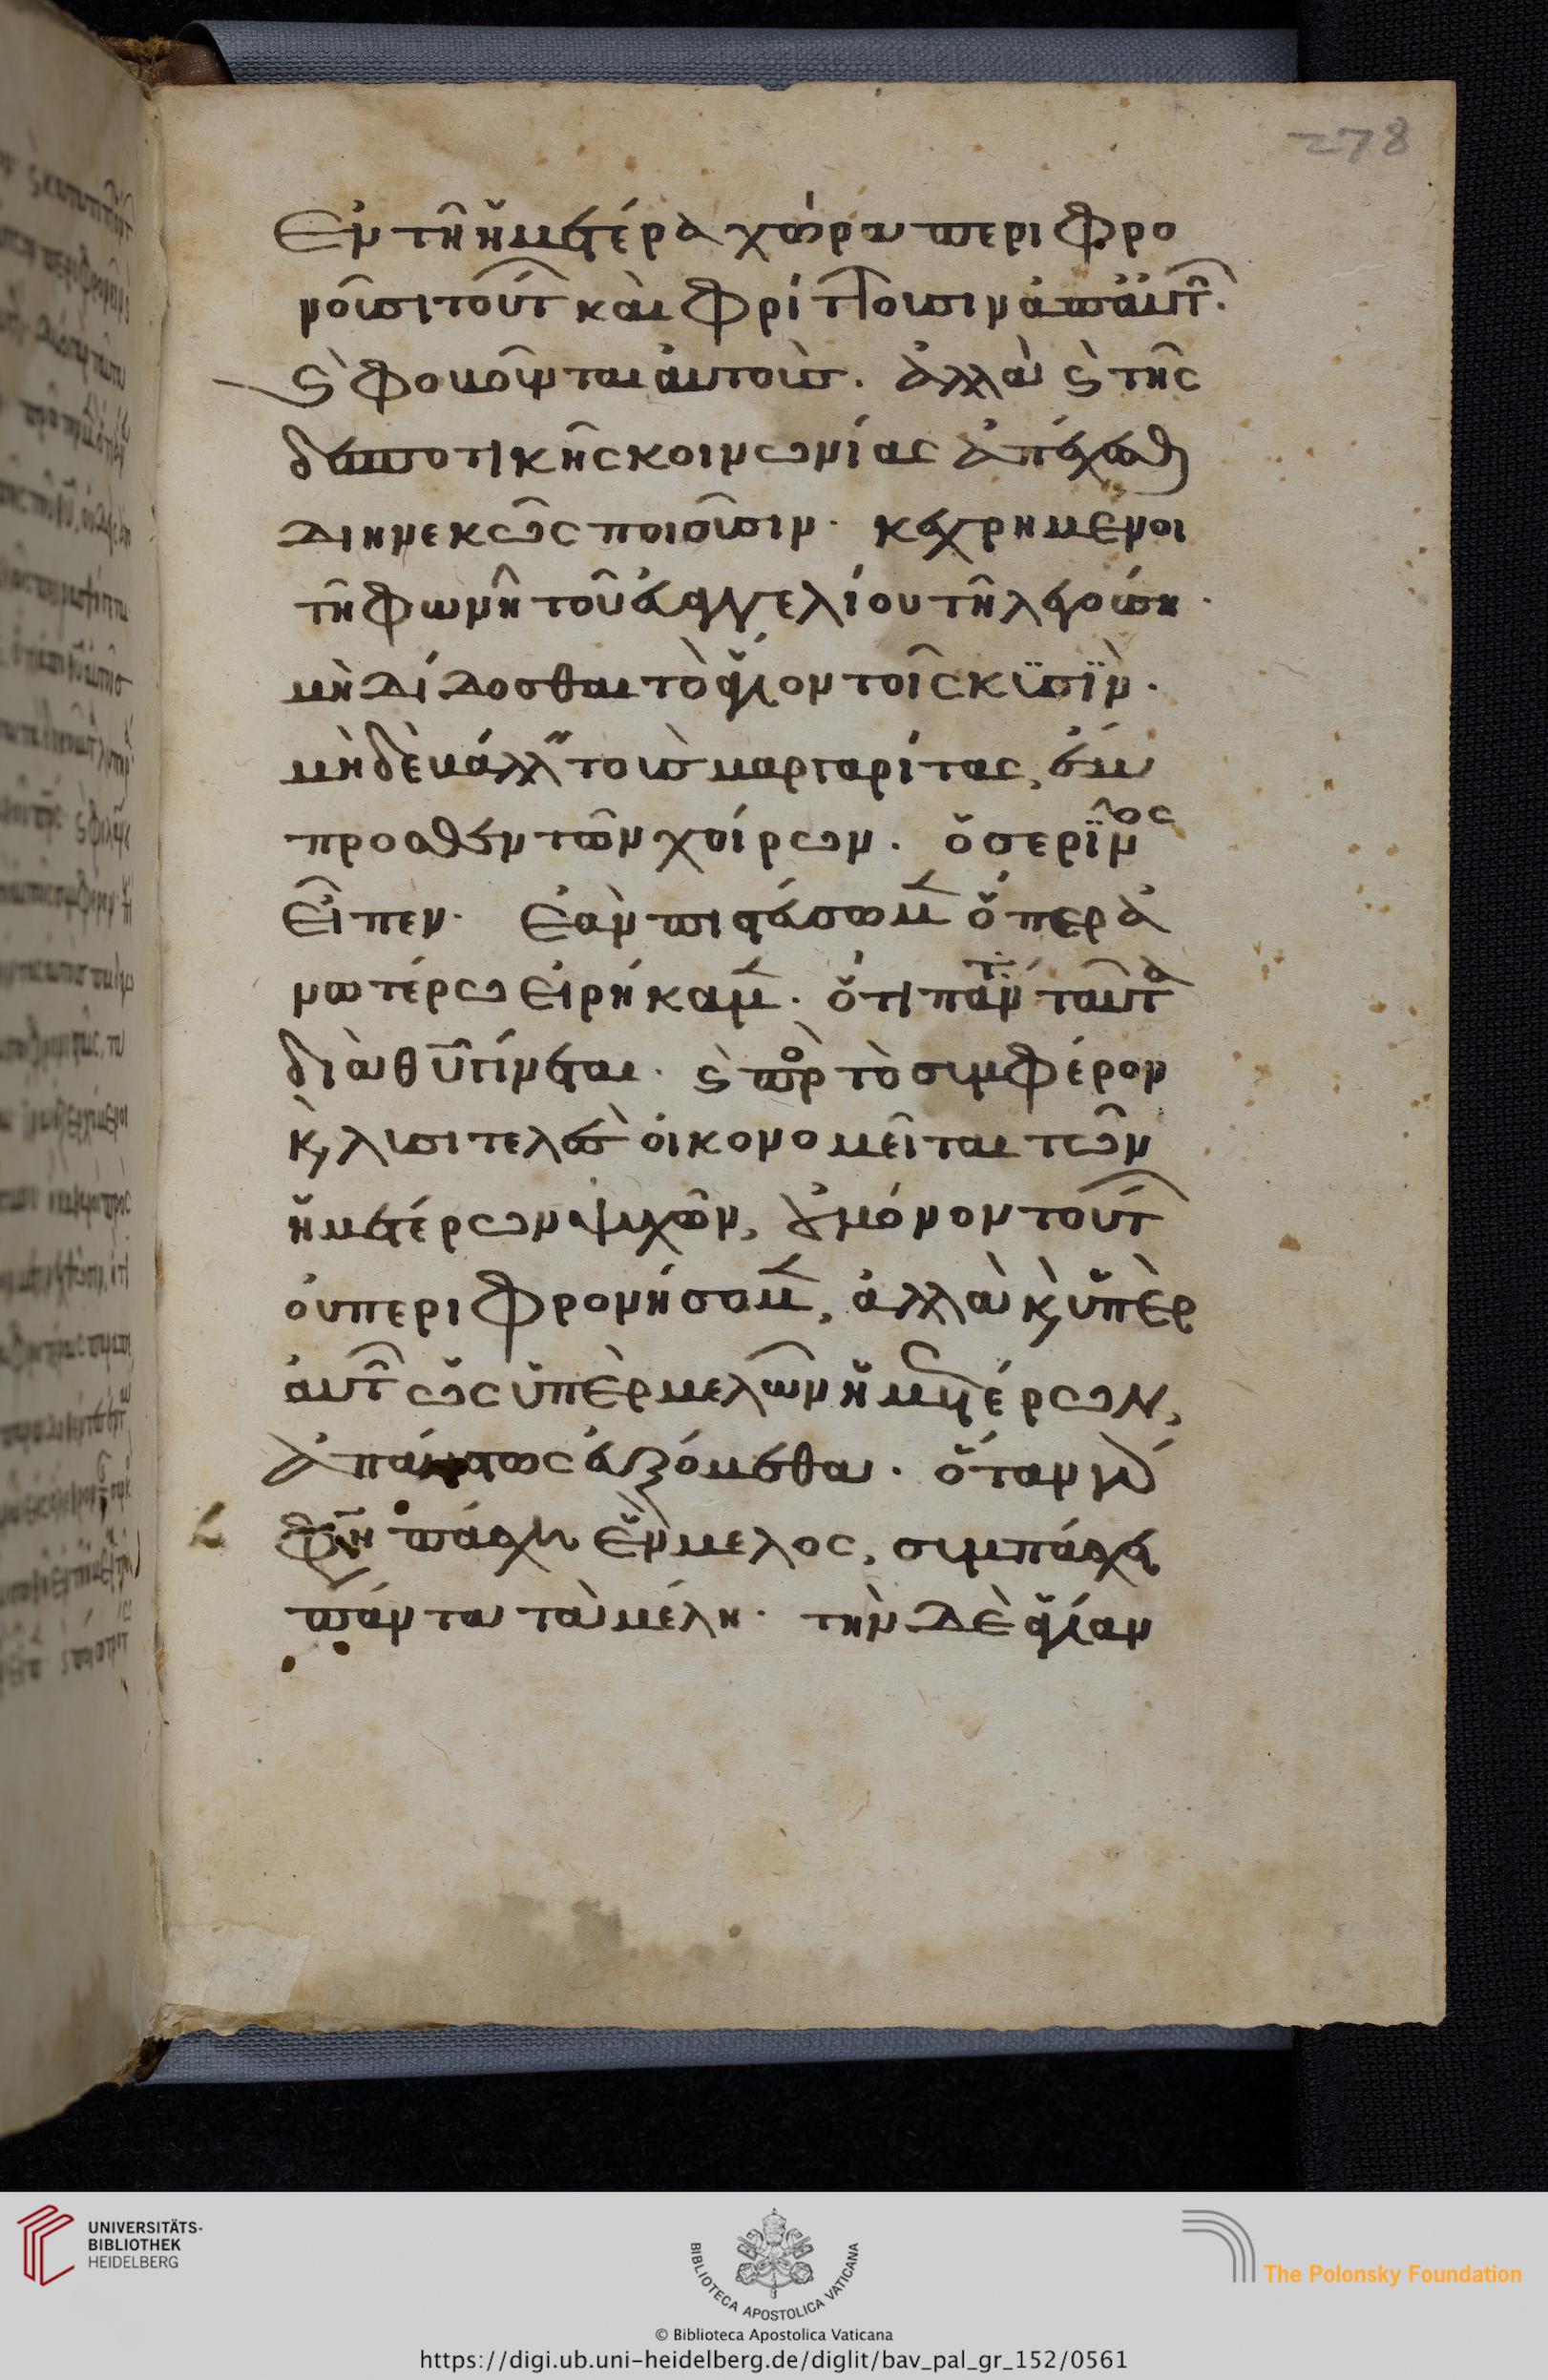 278
Ἐν τῆ ἡμετέρα χώρα περιφρο
νοῦσι τούτ καὶ φρίττουσιν ἀπ αὐτ.
ϛ φοβοῦνται αὐτούς. ἀλλὰ ϛ τῆς
δεσποτικῆς κοινωνίας ἀπέχεσθ
διηνεκῶς ποιοῦσιν. κεχρημένοι
τῆ φωνῆ τοῦ εὐαγγελίου τῆ λεγούση.
μὴ δίδοσθαι τὸ ἅγιον τοῖς κϋσὶν.
μὴδὲ βάλλ τοὺς μαργαρίτας, ἔμ
προσθεν τῶν χοίρων. ὁ γέρϊν
εἶπεν. Ἐὰν πιστεύσωμ ὅπερ ἀ
νωτέρω εἰρήκαμ. ὅτι πάν ταῦτα
διὰ θῦ γίνεται. ϛ πρ τὸ συμφέρον
κ λυσιτελὲς οἰκονομεῖται τῶν
ἡμετέρων ψυχῶν, οὐ μόνον τούτ
οὐ περιφρονήσομ, ἀλλὰ κ ὑπὲρ
αὐτ ὡς ὑπὲρ μελῶν ἡμετέρων,
ἀπαύστως εὐξόμεθα. ὅταν γὰρ
φησὶ πάσχη ἓν μέλος, συμπάσχει
πάντα τὰ μέλη. τὴν δὲ ἁγίαν
UNIVERSITÄTS-
BIBLIOTHEK
HEIDELBERG
BIBLIOTECA APOSTOLICA VATICANA
The Polonsky Foundation
© Biblioteca Apostolica Vaticana
https://digi.ub.uni-heidelberg.de/diglit/bav_pal_gr_152/0561